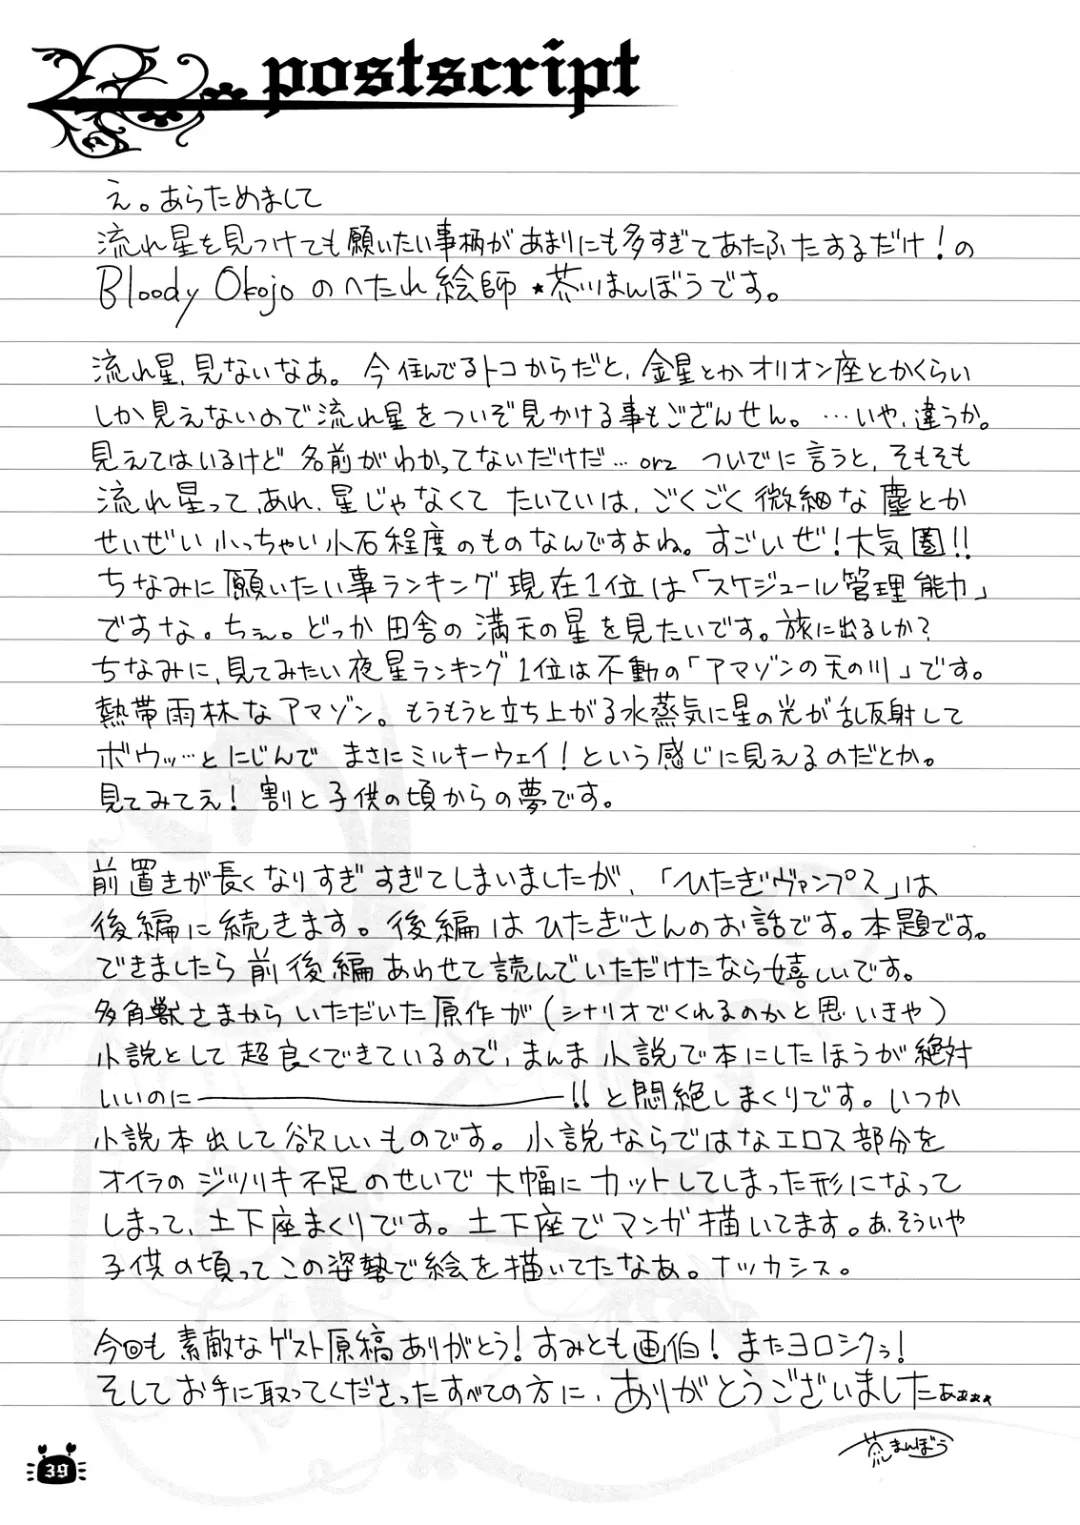 postscript
え。あらためまして
流れ星を見つけても願いたい事柄があまりにも多すぎてあたふたするだけ!の
Bloody Okojoのへたれ絵師★茶川まんぼうです。
流れ星、見ないなぁ。今住んでるトコからだと、金星とかオリオン座とかくらい
しか見えないので流れ星をついぞ見かける事もござんせん。…いや、違うか。
見えてはいるけど名前がわかってないだけだ…orz ついでに言うと、そもそも
流れ星って、あれ、星じゃなくて たいていは、ごくごく微細な塵とか
せいぜい小っちゃい小石程度のものなんですよね。すごいぜ!大気圏!!
ちなみに願いたい事ランキング現在1位は「スケジュール管理能力」
ですな。ちぇ。どっか田舎の満天の星を見たいです。旅に出るしか?
ちなみに、見てみたい夜星ランキング1位は不動の「アマゾンの天の川」です。
熱帯雨林なアマゾン。もうもうと立ち上がる水蒸気に星の光が乱反射して
ボウッ…とにじんで まさにミルキーウェイ!という感じに見えるのだとか。
見てみてえ!割と子供の頃からの夢です。
前置きが長くなりすぎすぎてしまいましたが、「ひたぎヴァンプス」は
後編に続きます。後編はひたぎさんのお話です。本題です。
できましたら前後編あわせて読んでいただけたなら嬉しいです。
多角獣さまからいただいた原作が(シナリオでくれるのかと思いきや)
小説として超良くできているので、まんま小説で本にしたほうが絶対
いいのに――――――――!!と悶絶しまくりです。いつか
小説本出して欲しいものです。小説ならではなエロス部分を
オイラのジツリキ不足のせいで大幅にカットしてしまった形になって
しまって、土下座まくりです。土下座でマンガ描いてます。あ、そういや
子供の頃ってこの姿勢で絵を描いてたなあ。ナツカシス。
今回も素敵なゲスト原稿ありがとう!すみとも画伯!またヨロシクぅ!
そしてお手に取ってくださったすべての方に、ありがとうございましたぁぁぁぁ
まんぼう
39